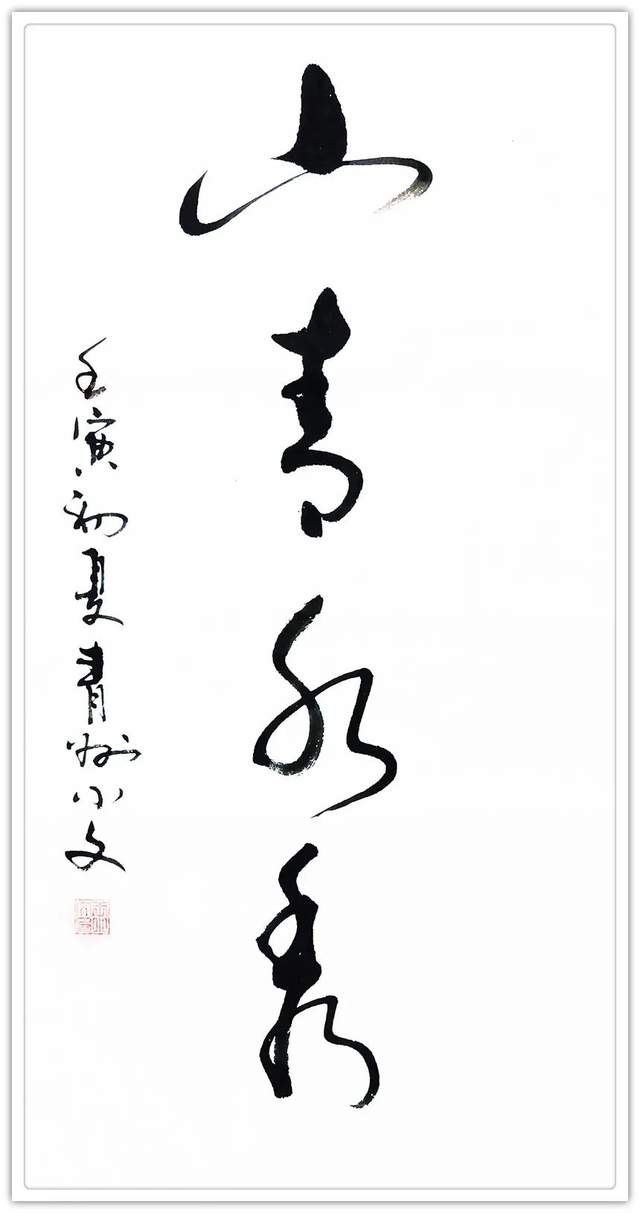 山青水秀
壬寅初夏青州小文